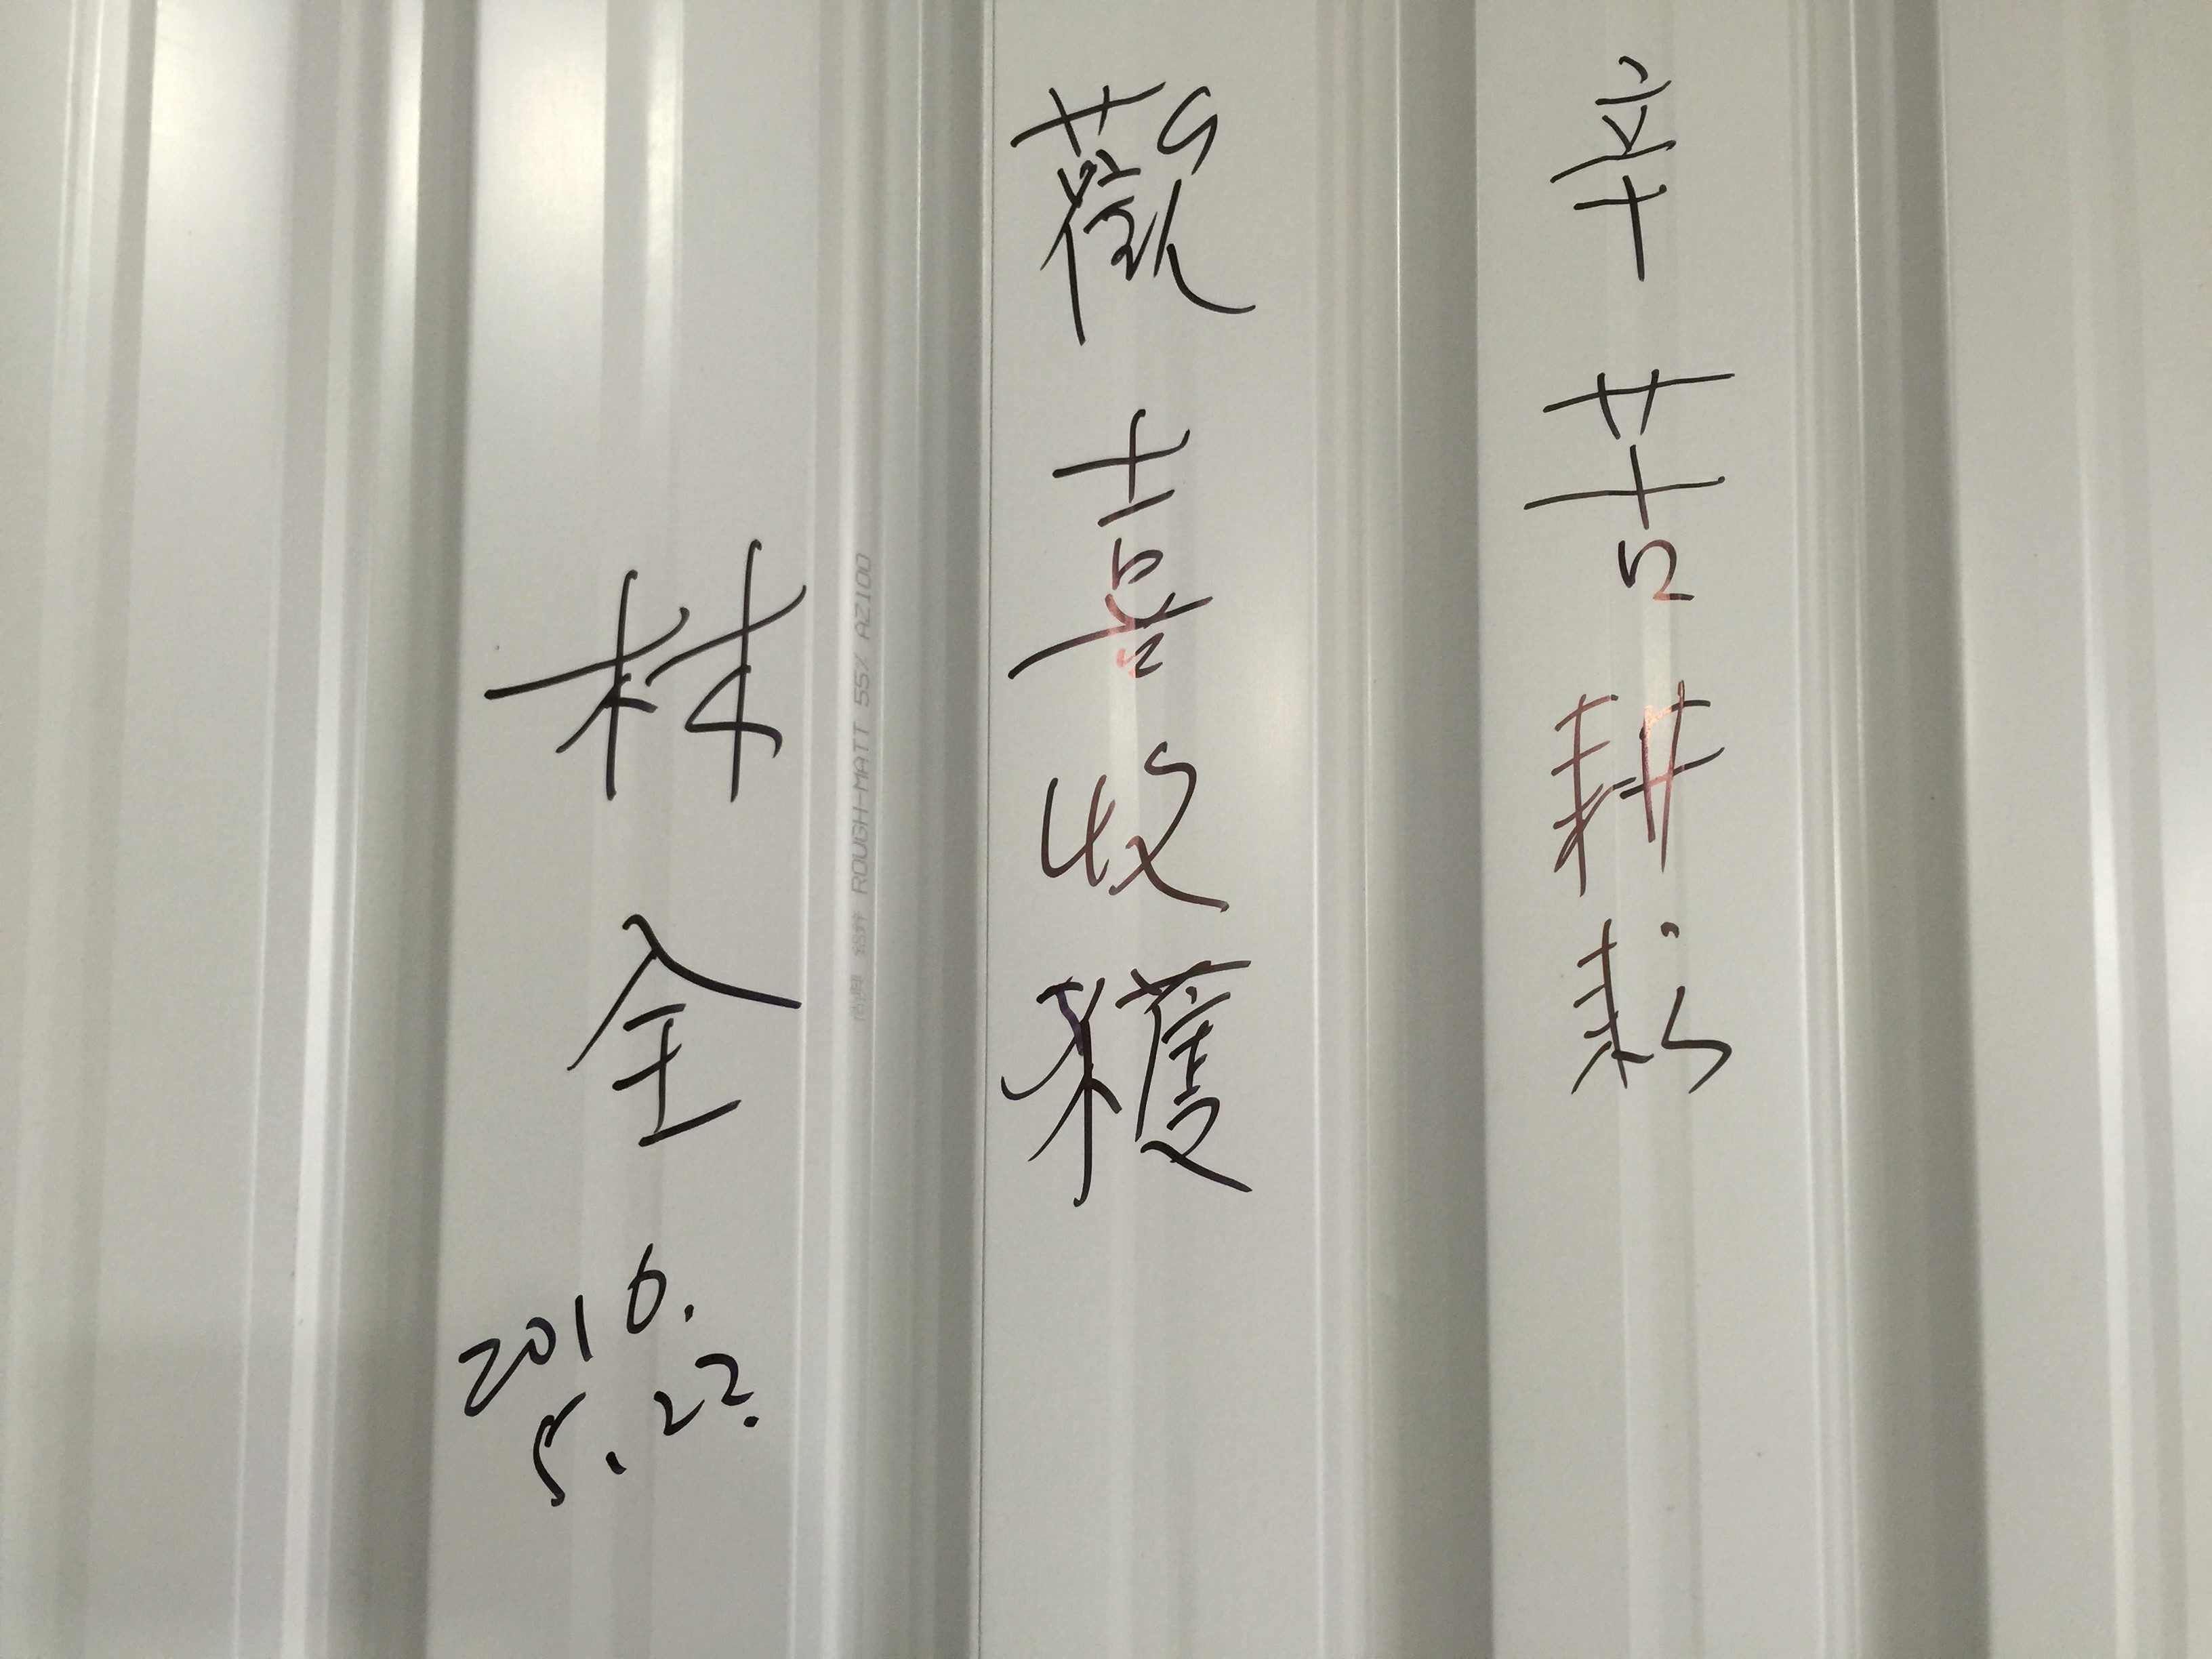 辛苦耕耘
歡喜收穫
林全
2016.
5.22.
ROUGH-MATT 55% AZ100